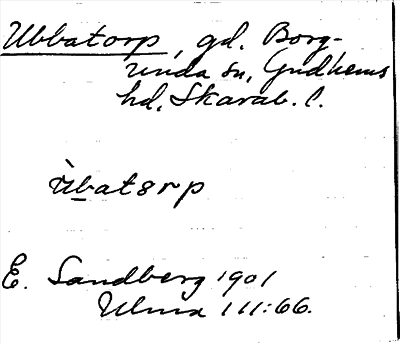 Ubbatorp, gd. Borg-
unda sn, Gudhems
hd, Skarab. l.
ùbatərp
E. Sandberg 1901
Ulma 111:66.